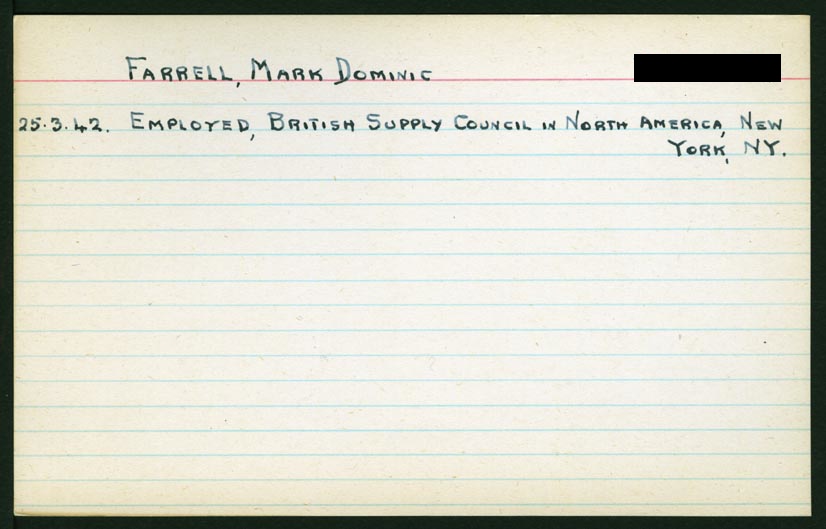 FARRELL, MARK DOMINIC
25.3.42. EMPLOYED, BRITISH SUPPLY COUNCIL IN NORTH AMERICA, NEW
YORK, NY.